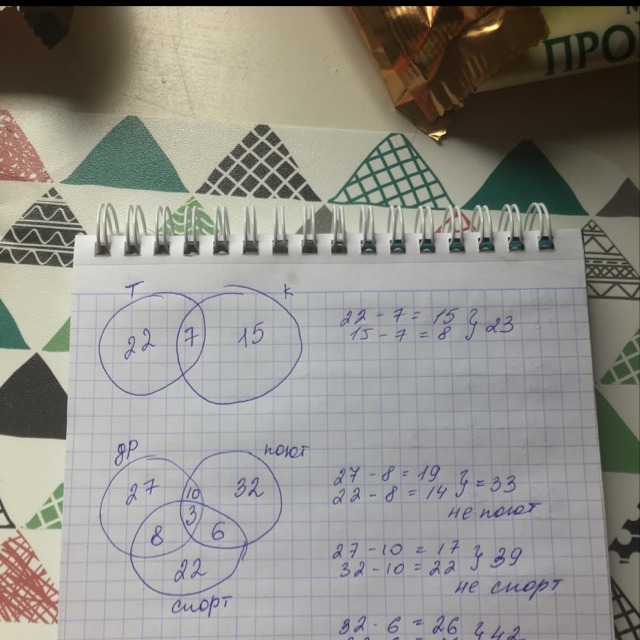 ПРО
Т К
22 7 15
22 - 7 = 15
15 - 7 = 8 } 23
др поют
27 10 32
3
8 6
22
спорт
27 - 8 = 19
22 - 8 = 14 } = 33
не поют
27 - 10 = 17
32 - 10 = 22 } 39
не спорт
32 - 6 = 26